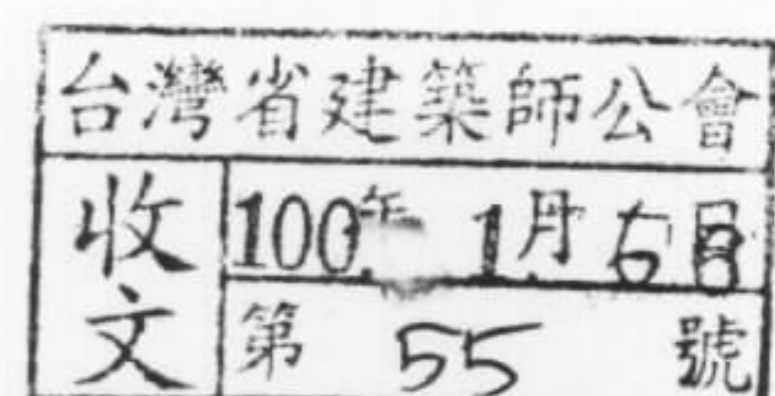 台灣省建築師公會
收文
100年 1月 日
第 55 號